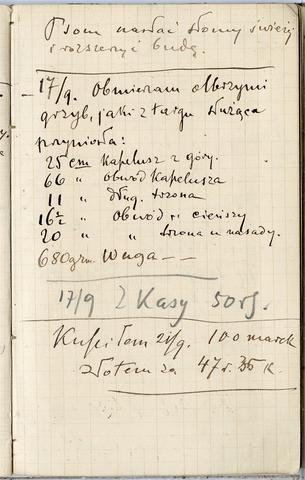 Psom nasłać słomy świeżej
i rozszerzyć budę.
17/9. Obmieram olbrzymi
grzyb, jaki z targu służąca
przyniosła:
25 cm Kapelusz z góry.
66 " Obwód Kapelusza
11 " dług. trzona
16½ " Obwód " cieńszy
20 " " trzona u nasady.
680 grm. Waga — —
17/9 Z Kasy 50 rs.
Kupiłem 21/9. 100 marek
złotem za 47 r. 35 k.